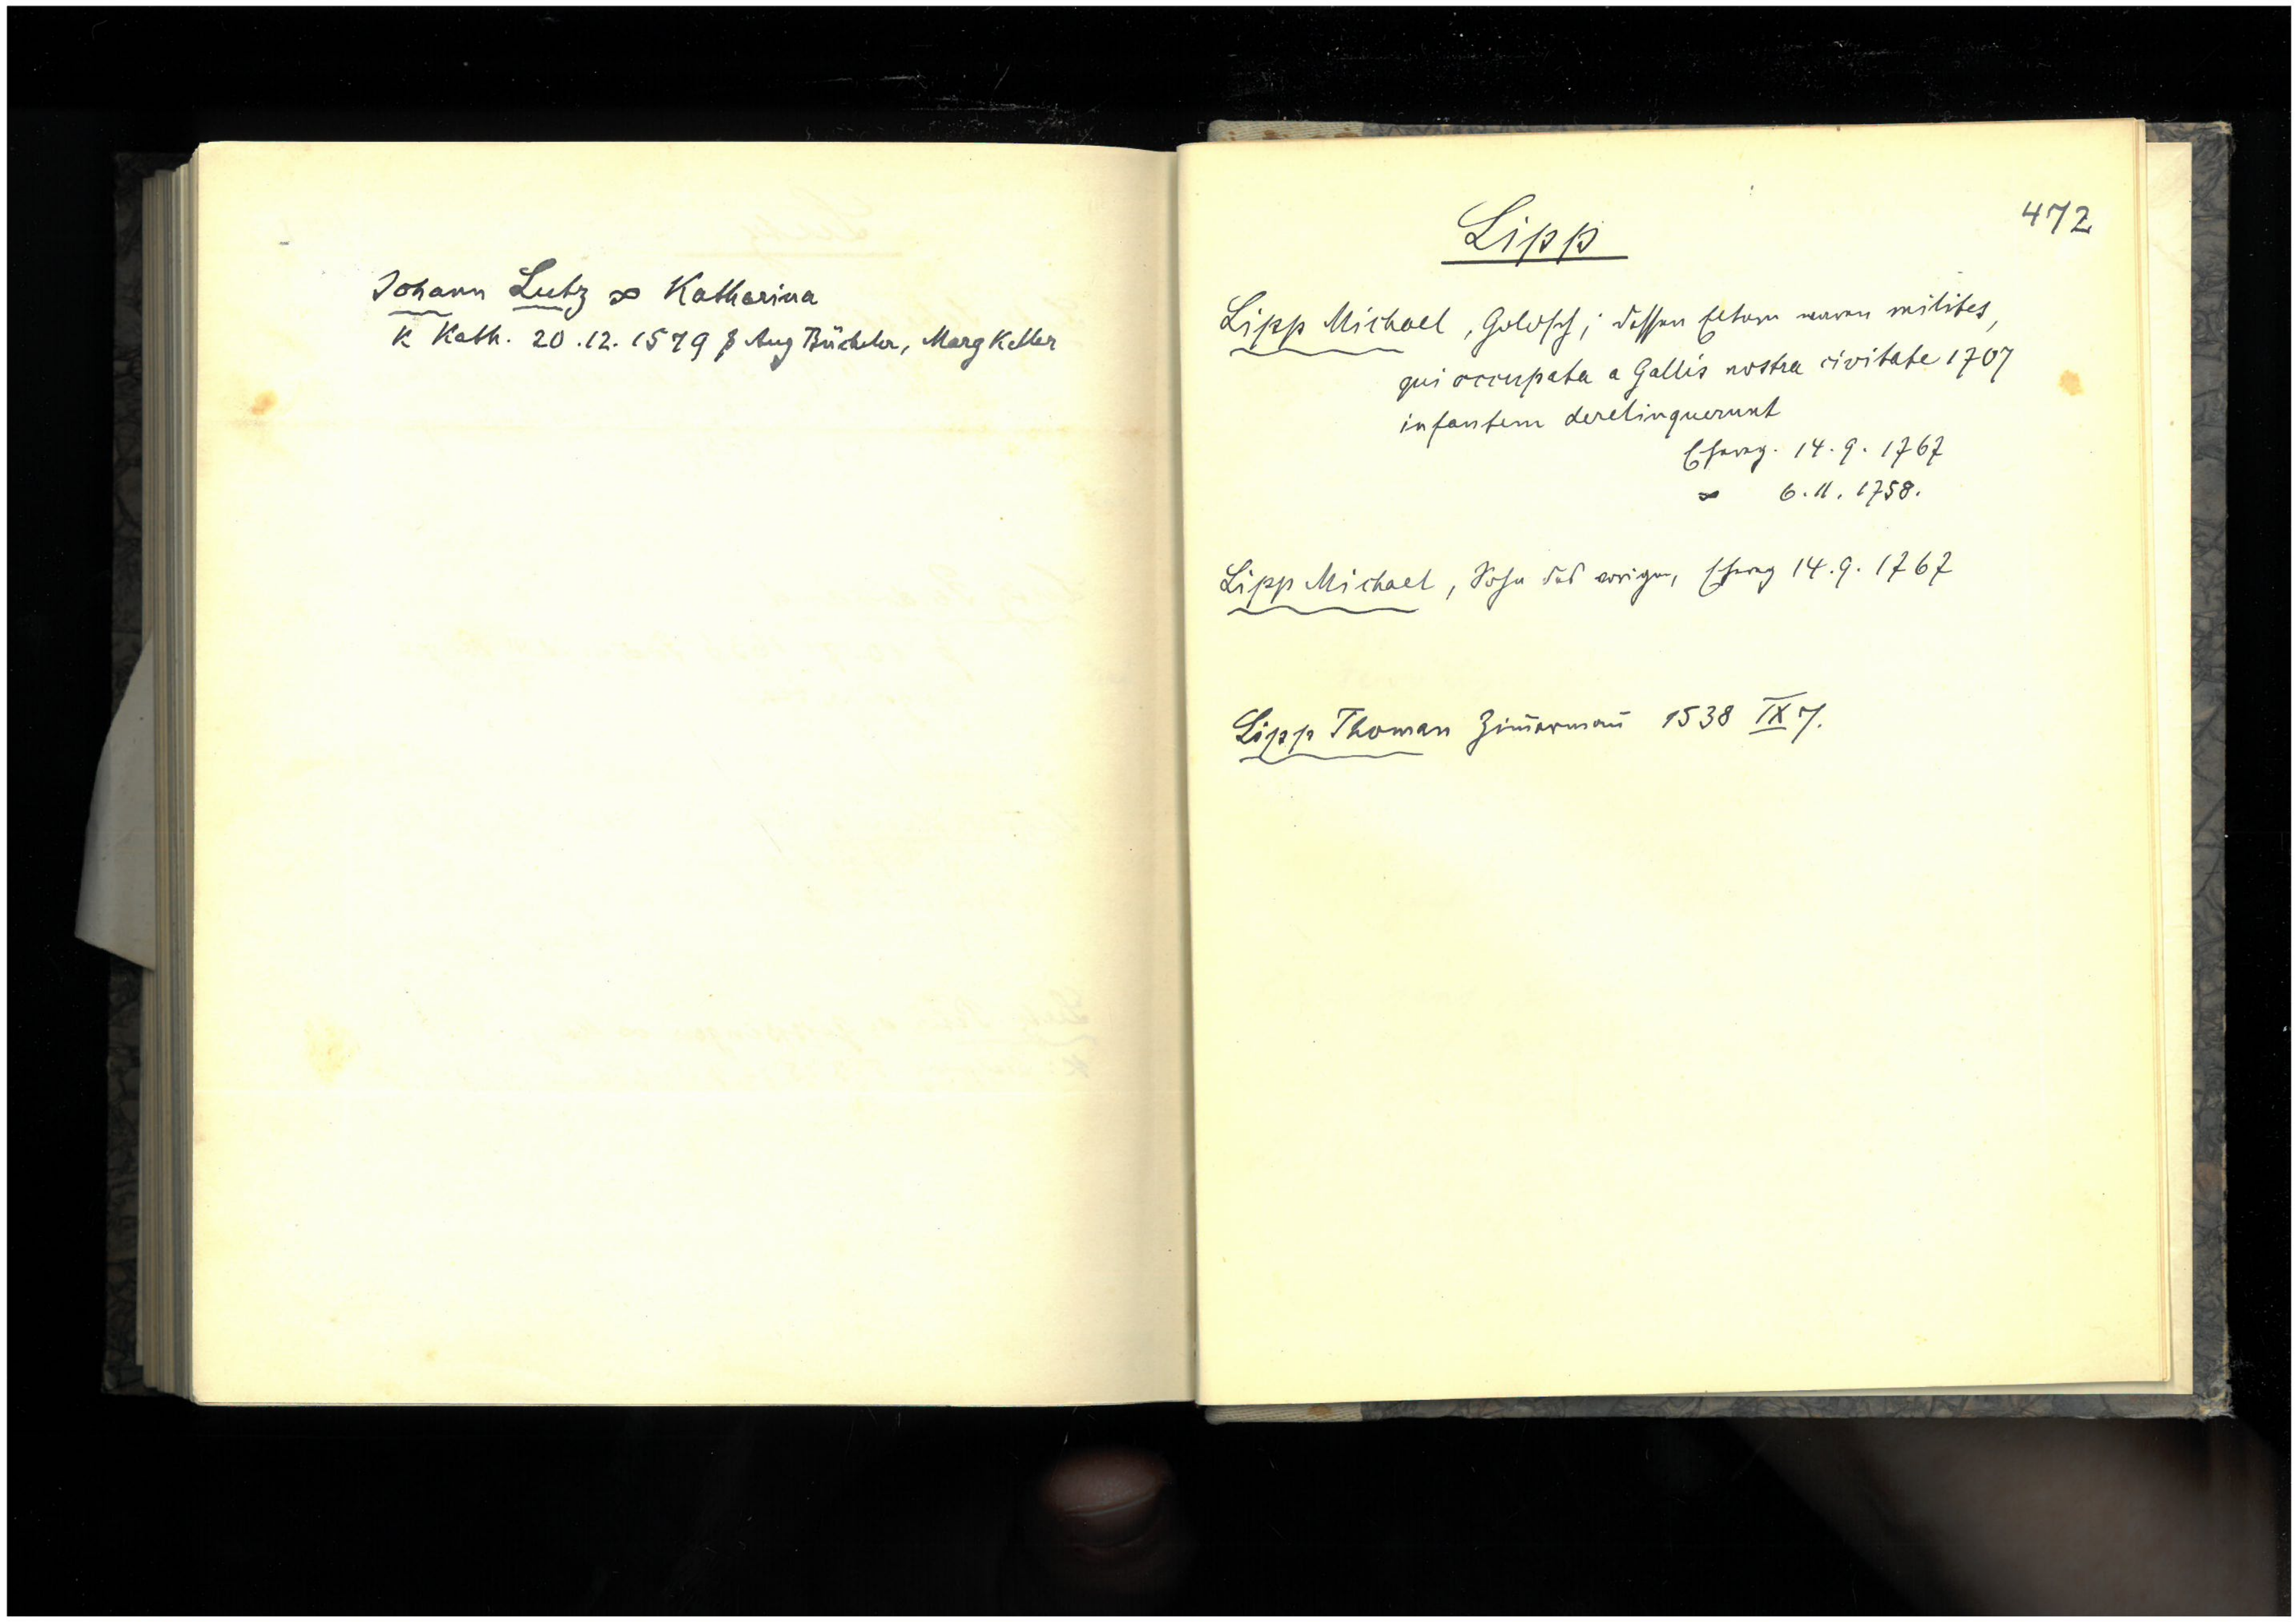 Johann Lutz ∞ Katharina
K Kath. 20.12.1579 P Aug Bücheler, Marg Keller
472
Lipp
Lipp Michael, Goldsch; dessen Eltern waren milites,
qui occupata a Gallis nostra civitate 1707
infantem derelinquerunt
Ehevg. 14.9.1767
∞ 6.11.1758.
Lipp Michael, Sohn des vorigen, Ehevg 14.9.1767
Lipp Thoman Zim̄ermañ 1538 IX 7.